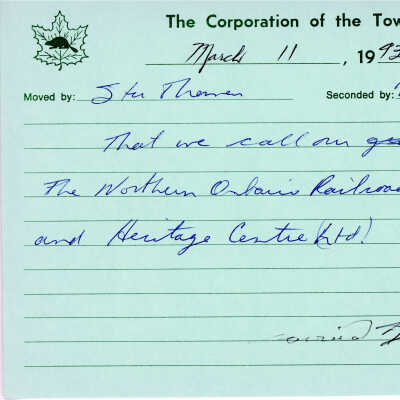 The Corporation of the Tow
March 11, 1993
Moved by: Stu Seconded by:
That we call our
The Northern Ontario Railroad
and Heritage Centre (Ltd)